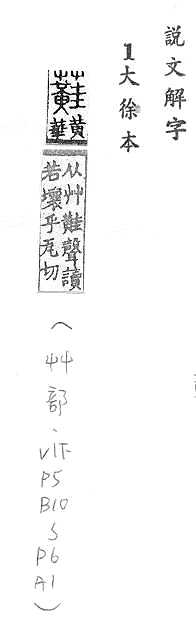 説文解字
1大徐本
蘳黄華
从艸黊聲讀
若壞乎瓦切
（艸部、V1下P5B10~P6A1）